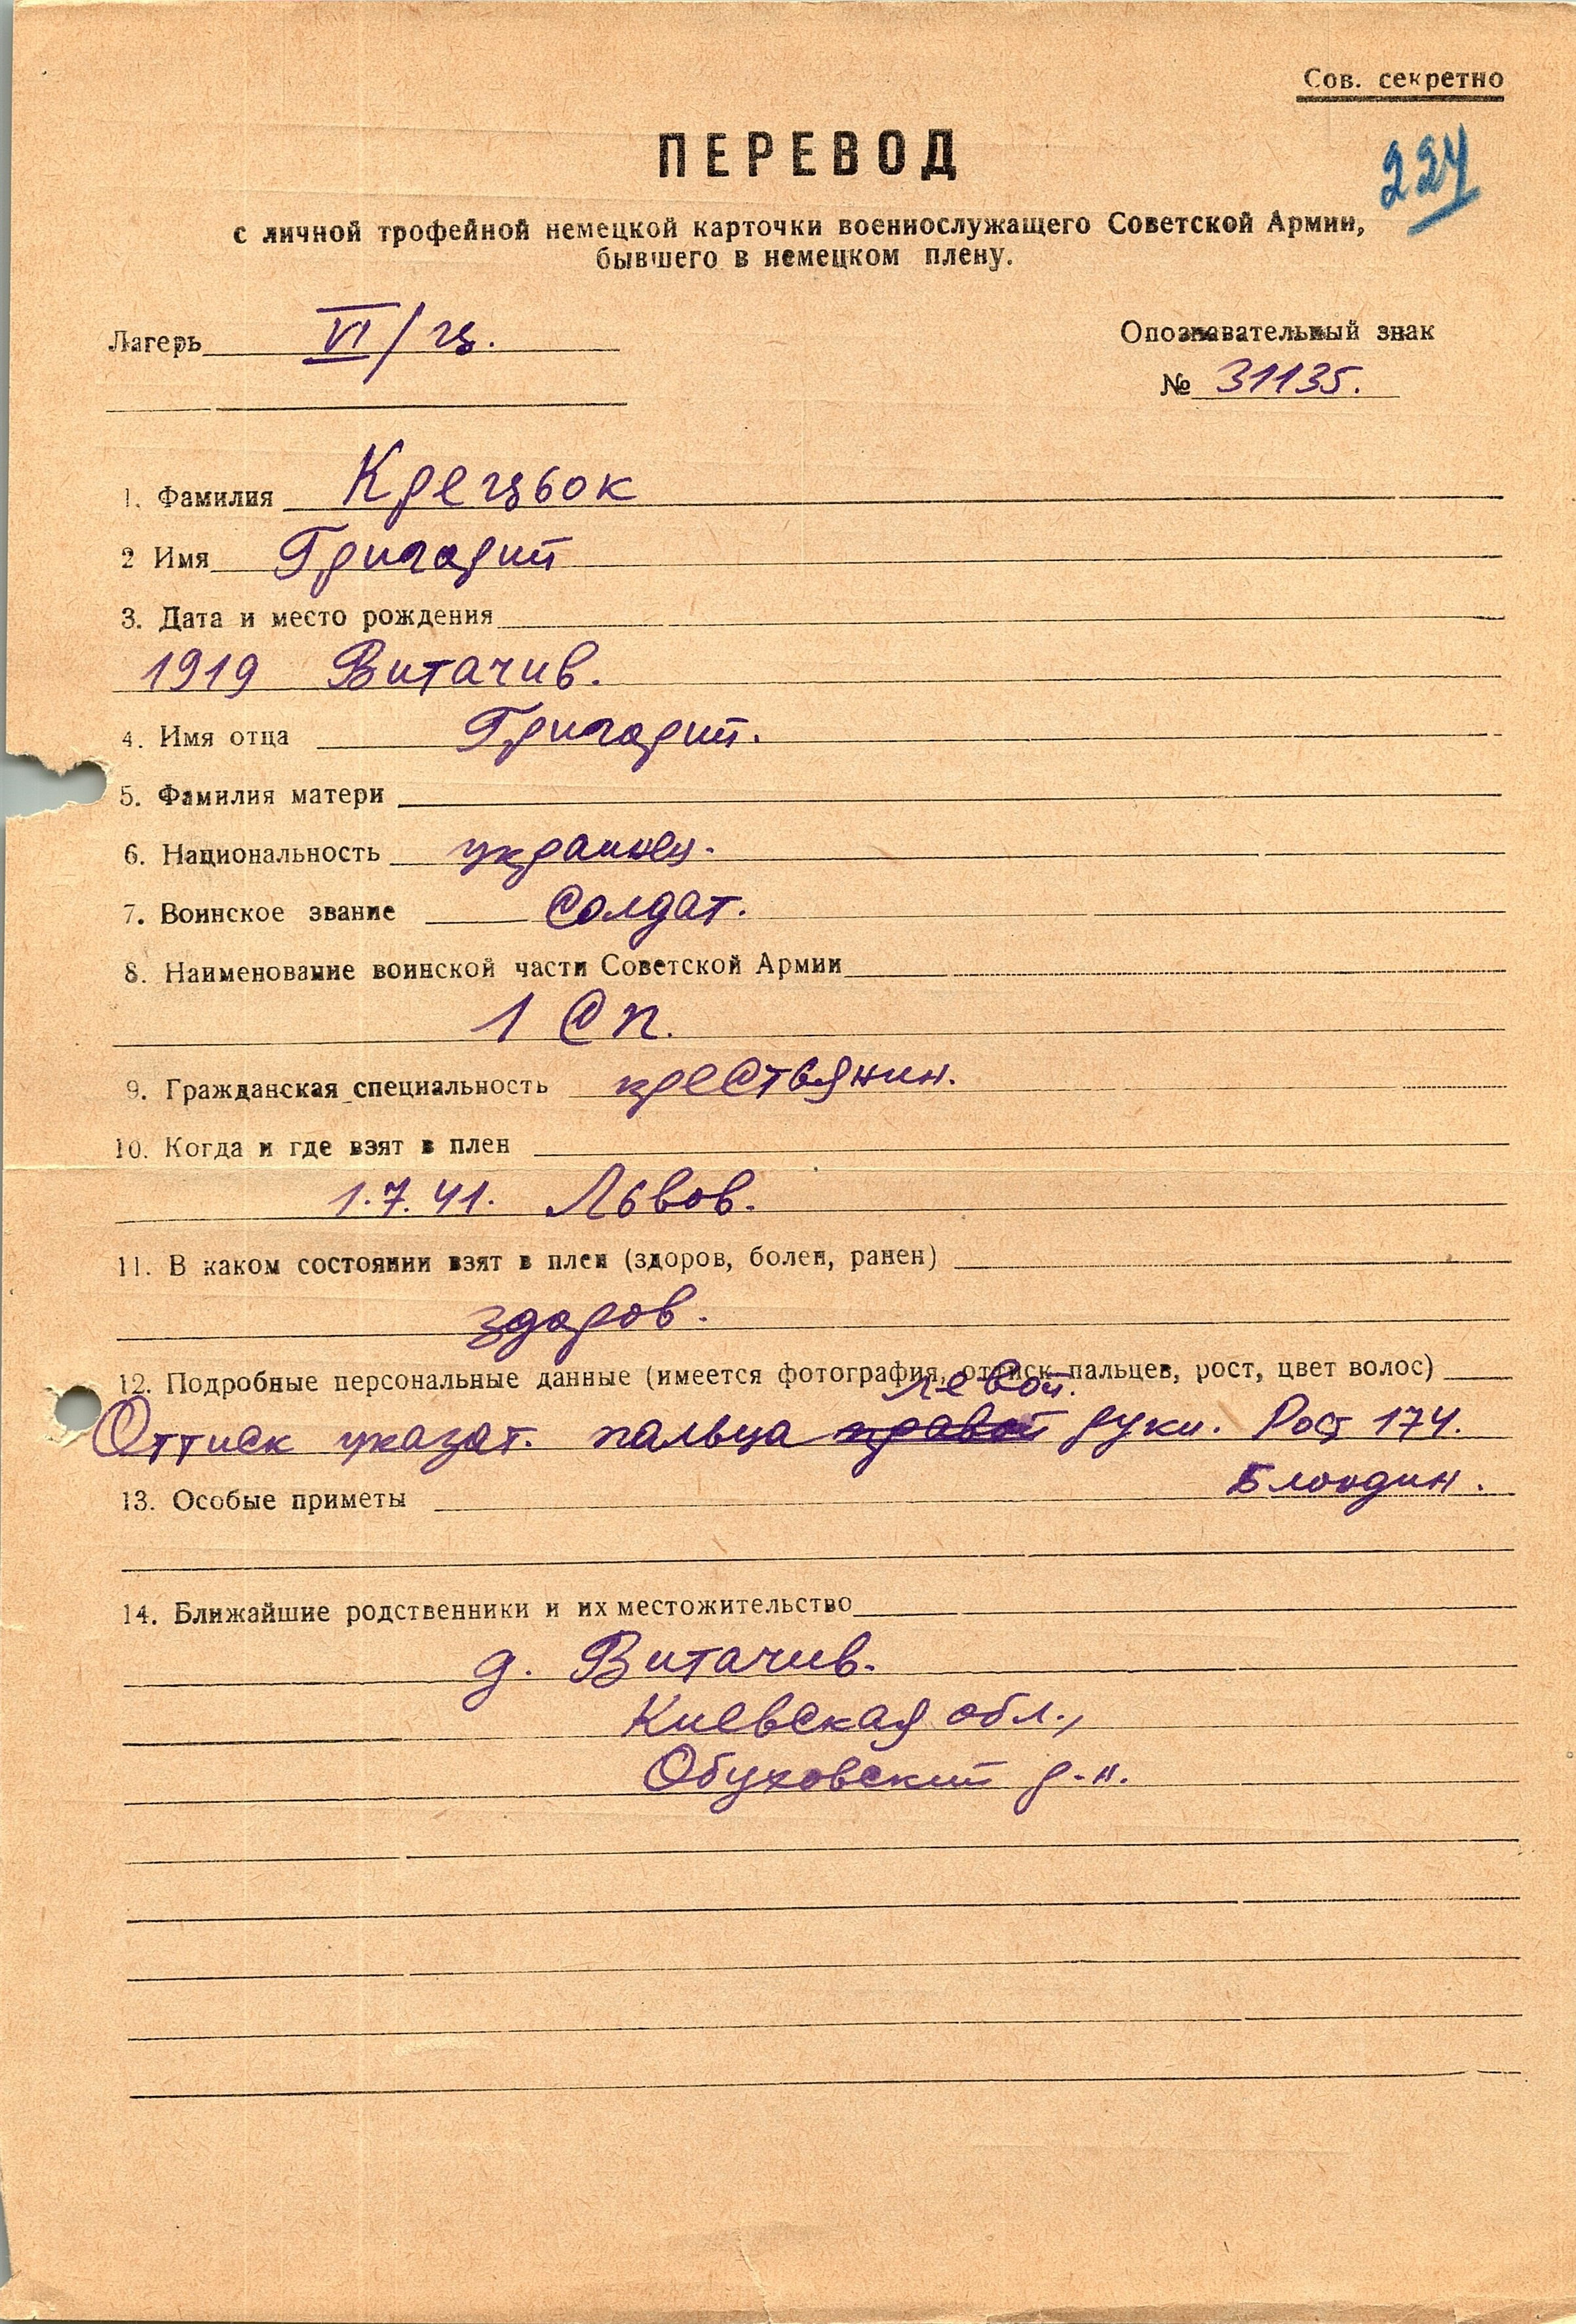 Сов. секретно
224
ПЕРЕВОД
с личной трофейной немецкой карточки военнослужащего Советской Армии,
бывшего в немецком плену.
Лагерь VI/ц.
Опознавательный знак
№ 31135.
1. Фамилия Крецьок
2 Имя Григорий
3. Дата и место рождения
1919 Витачив.
4. Имя отца Григорий.
5. Фамилия матери
6. Национальность украинец.
7. Воинское звание Солдат.
8. Наименование воинской части Советской Армии
1 Сп.
9. Гражданская специальность крестьянин.
10. Когда и где взят в плен
1.7.41. Львов.
11. В каком состоянии взят в плен (здоров, болен, ранен)
здоров.
12. Подробные персональные данные (имеется фотография, оттиск пальцев, рост, цвет волос)
левой.
Оттиск указат. пальца правой руки. Рост 174.
Блондин.
13. Особые приметы
14. Ближайшие родственники и их местожительство
д. Витачив.
Киевская обл.,
Обуховский р-н.